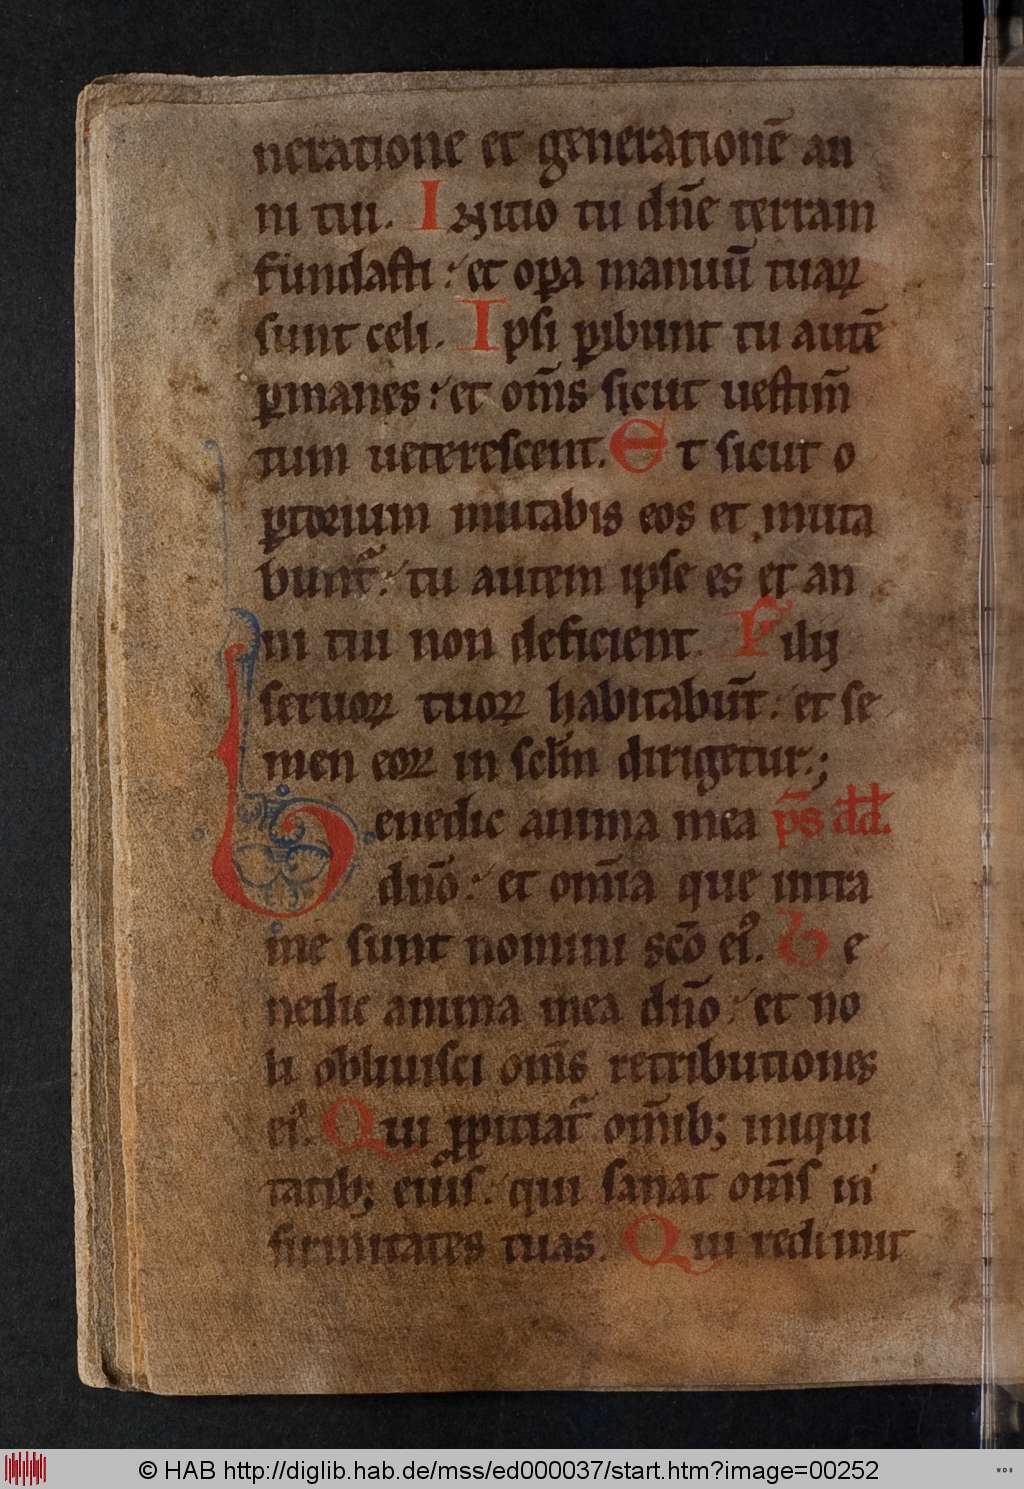 neratione et generationē an
ni tui. Initio tu dn̄e terram
fundasti : et oꝑa manuū tuaꝝ
sunt celi. Ipsi ꝑibunt tu autē
ꝑmanes : et om̄s sicut uestim̄
tum ueterescent. Et sicut o
ꝑtorium mutabis eos et muta
bunt᷑ : tu autem ipse es et an
ni tui non deficient. Filij
seruoꝝ tuoꝝ habitabūt : et se
men eoꝝ in sclm̄ dirigetur.;
Benedic anima mea p̄s dd.
dn̄o : et om̄ia que intra
me sunt nomini sc̄o eiꝰ. Be
nedic anima mea dn̄o : et no
li obliuisci om̄s retributiones
eiꝰ. Qui ꝓpitiat᷑ om̄ib; iniqui
tatib; eius : qui sanat om̄s in
firmitates tuas. Qui redimit
© HAB http://diglib.hab.de/mss/ed000037/start.htm?image=00252